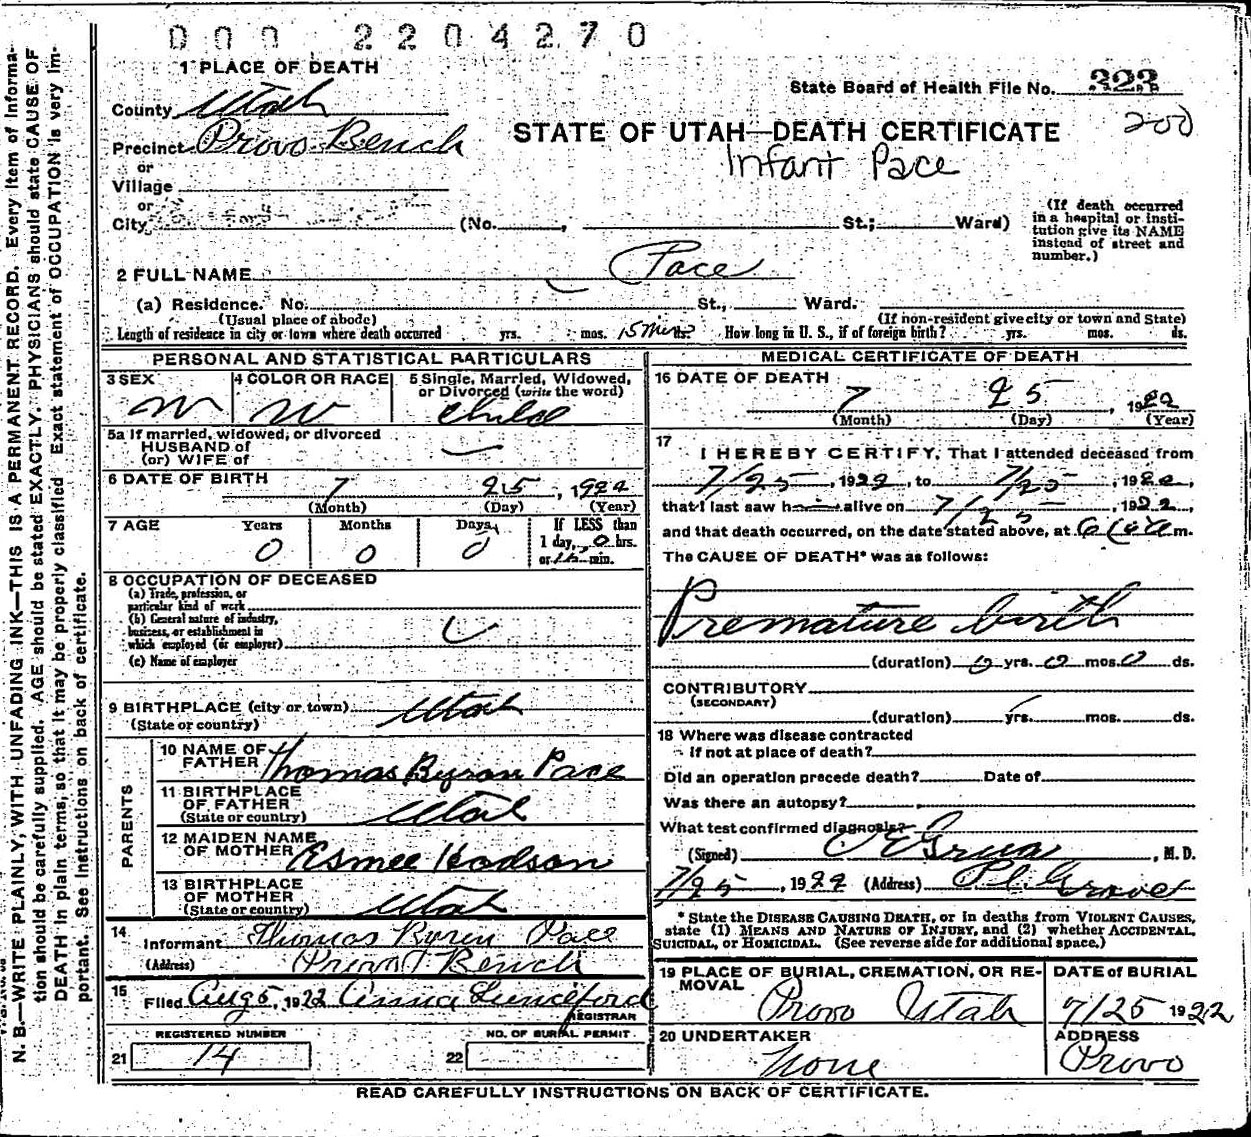 000 2204270
1 PLACE OF DEATH
County Utah
State Board of Health File No. 323
200
Precinct Provo Bench
STATE OF UTAH—DEATH CERTIFICATE
Infant Pace
or
Village
or
City (No. , St.; Ward)
(If death occurred
in a hospital or insti-
tution give its NAME
instead of street and
number.)
2 FULL NAME Pace
(a) Residence. No. St., Ward.
(Usual place of abode) (If non-resident give city or town and State)
Length of residence in city or town where death occurred yrs. mos. 15 Mins ds. How long in U. S., if of foreign birth? yrs. mos. ds.
PERSONAL AND STATISTICAL PARTICULARS
3 SEX 4 COLOR OR RACE 5 Single, Married, Widowed,
or Divorced (write the word)
M W Child
5a If married, widowed, or divorced
HUSBAND of
(or) WIFE of
6 DATE OF BIRTH
7 25, 1922
(Month) (Day) (Year)
7 AGE Years Months Days If LESS than
0 0 0 1 day, 0 hrs.
or 15 min.
8 OCCUPATION OF DECEASED
(a) Trade, profession, or
particular kind of work
(b) General nature of industry,
business, or establishment in
which employed (or employer)
(c) Name of employer
9 BIRTHPLACE (city or town) Utah
(State or country)
PARENTS
10 NAME OF
FATHER Thomas Byron Pace
11 BIRTHPLACE
OF FATHER
(State or country) Utah
12 MAIDEN NAME
OF MOTHER Esmee Hodson
13 BIRTHPLACE
OF MOTHER
(State or country) Utah
14 Informant Thomas Byron Pace
(Address) Provo Bench
15 Filed Aug 5, 1922 Anna Lunceford
REGISTRAR
REGISTERED NUMBER NO. OF BURIAL PERMIT
21 14 22
MEDICAL CERTIFICATE OF DEATH
16 DATE OF DEATH
7 25, 1922
(Month) (Day) (Year)
17
I HEREBY CERTIFY, That I attended deceased from
7/25, 1922, to 7/25, 1922,
that I last saw h alive on 7/25, 1922,
and that death occurred, on the date stated above, at m.
The CAUSE OF DEATH* was as follows:
Premature birth
(duration) 0 yrs. 0 mos. 0 ds.
CONTRIBUTORY
(SECONDARY)
(duration) yrs. mos. ds.
18 Where was disease contracted
if not at place of death?
Did an operation precede death? Date of
Was there an autopsy?
What test confirmed diagnosis?
(Signed) , M. D.
7/25, 1922 (Address) Pl. Grove
* State the DISEASE CAUSING DEATH, or in deaths from VIOLENT CAUSES,
state (1) MEANS AND NATURE OF INJURY, and (2) whether ACCIDENTAL,
SUICIDAL, or HOMICIDAL. (See reverse side for additional space.)
19 PLACE OF BURIAL, CREMATION, OR RE-
MOVAL
Provo Utah
DATE of BURIAL
7/25 1922
20 UNDERTAKER
None
ADDRESS
Provo
READ CAREFULLY INSTRUCTIONS ON BACK OF CERTIFICATE.
N. B.—WRITE PLAINLY, WITH UNFADING INK—THIS IS A PERMANENT RECORD. Every item of informa-
tion should be carefully supplied. AGE should be stated EXACTLY. PHYSICIANS should state CAUSE OF
DEATH in plain terms, so that it may be properly classified. Exact statement of OCCUPATION is very im-
portant. See instructions on back of certificate.